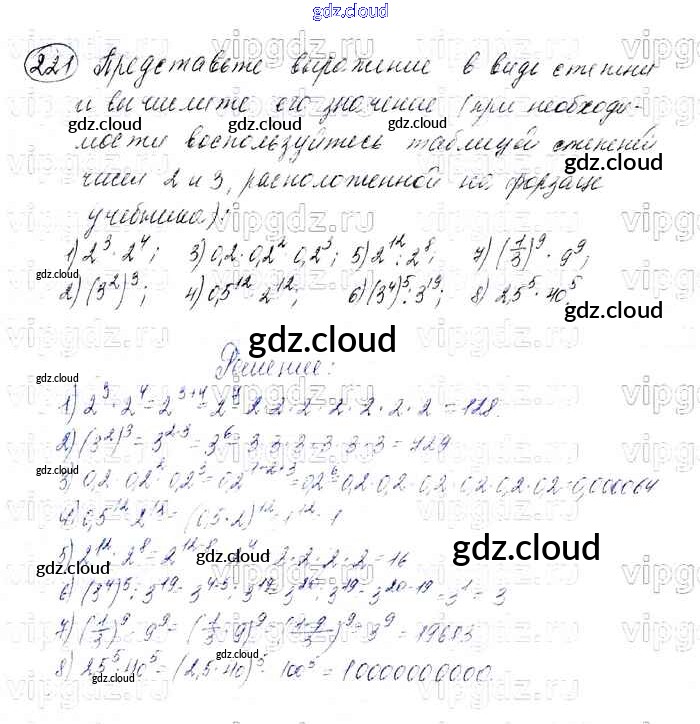 gdz.cloud
221 Представьте выражение в виде степени
и вычислите его значение (при необходи-
мости воспользуйтесь таблицей степеней
чисел 2 и 3, расположенной на форзаце
учебника):
1) 2³ · 2⁴; 3) 0,2 · 0,2² · 0,2³; 5) 2¹² : 2⁸; 7) (1/3)⁹ · 9⁹;
2) (3²)³; 4) 0,5¹² · 2¹²; 6) (3⁴)⁵ : 3¹⁹; 8) 2,5⁵ · 40⁵
Решение:
1) 2³ · 2⁴ = 2³⁺⁴ = 2⁷ = 2 · 2 · 2 · 2 · 2 · 2 · 2 = 128.
2) (3²)³ = 3²·³ = 3⁶ = 3 · 3 · 3 · 3 · 3 · 3 = 729
3) 0,2 · 0,2² · 0,2³ = 0,2¹⁺²⁺³ = 0,2⁶ = 0,2 · 0,2 · 0,2 · 0,2 · 0,2 · 0,2 = 0,000064
4) 0,5¹² · 2¹² = (0,5 · 2)¹² = 1¹² = 1
5) 2¹² : 2⁸ = 2¹²⁻⁸ = 2⁴ = 2 · 2 · 2 · 2 = 16
6) (3⁴)⁵ : 3¹⁹ = 3⁴·⁵ : 3¹⁹ = 3²⁰ : 3¹⁹ = 3²⁰⁻¹⁹ = 3¹ = 3
7) (1/3)⁹ · 9⁹ = (1/3 · 9)⁹ = (1·9/3)⁹ = 3⁹ = 19683
8) 2,5⁵ · 40⁵ = (2,5 · 40)⁵ = 100⁵ = 10000000000.